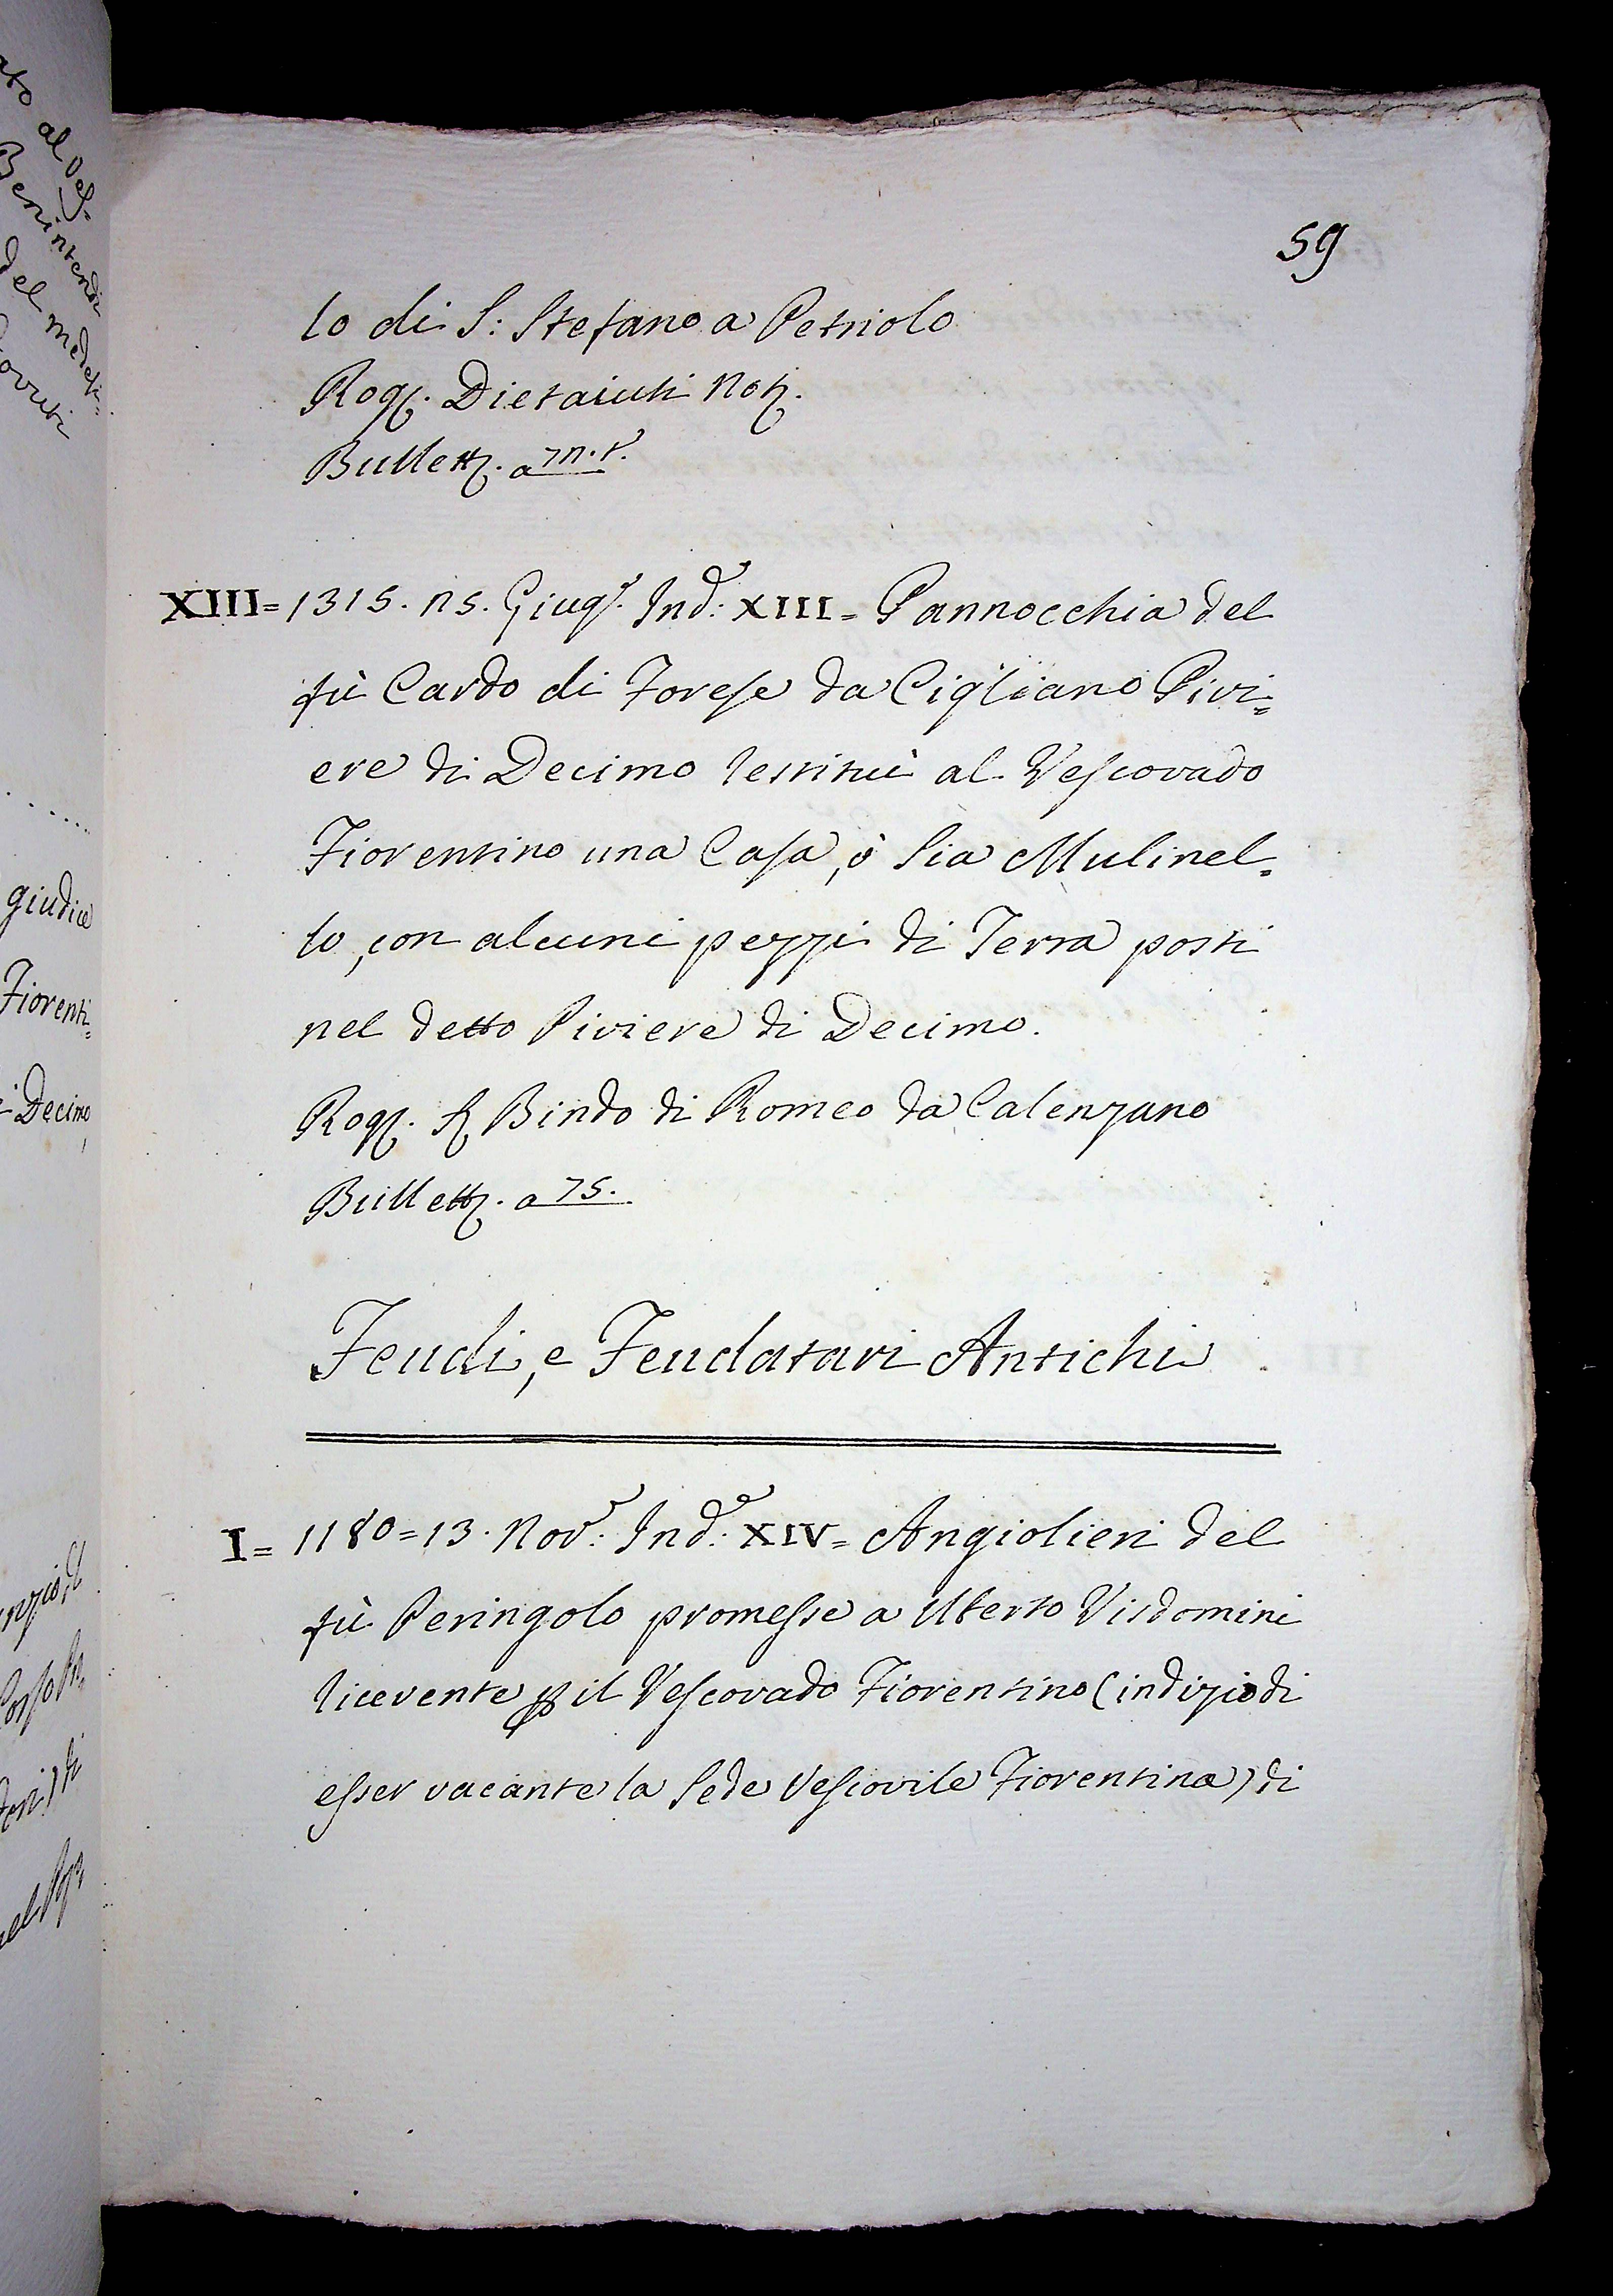 59
lo di S: Stefano a Petriolo
Rogͥ. Dietaiuti Notͦ.
Bullettͤ. a
XIII= 1315. ns. Giugͦ. Indͤ: XIII= Pannocchia del
fù Cardo di Forese da Cigliano Pivi=
ere di Decimo restituì al Vescovado
Fiorentino una Casa, ò sia Mulinel=
lo, con alcuni pezzi di Terra posti
nel detto Piviere di Decimo.
Rog. Bindo di Romeo da Calenzano
Bullett. a 75.
Feudi, e Feudatari Antichi
I= 1180=13. Novͤ: Indͤ: XIV= Angiolieri del
fù Peringolo promesse a Uberto Visdomini
ricevente p il Vescovado Fiorentino (indizio di
esser vacante la Sede Vescovile Fiorentina) di
giudice
Fiorenti=
Decimo